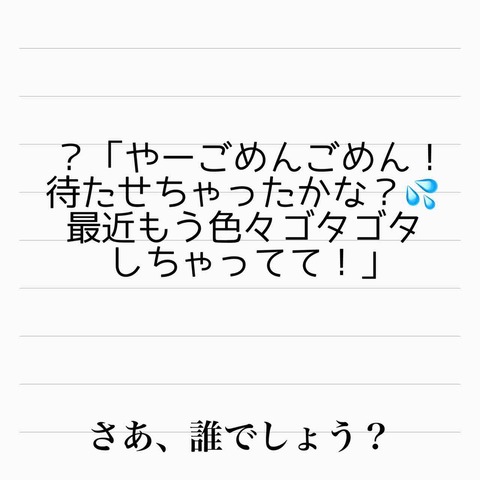 ？「やーごめんごめん！
待たせちゃったかな？💦
最近もう色々ゴタゴタ
しちゃってて！」
さあ、誰でしょう？